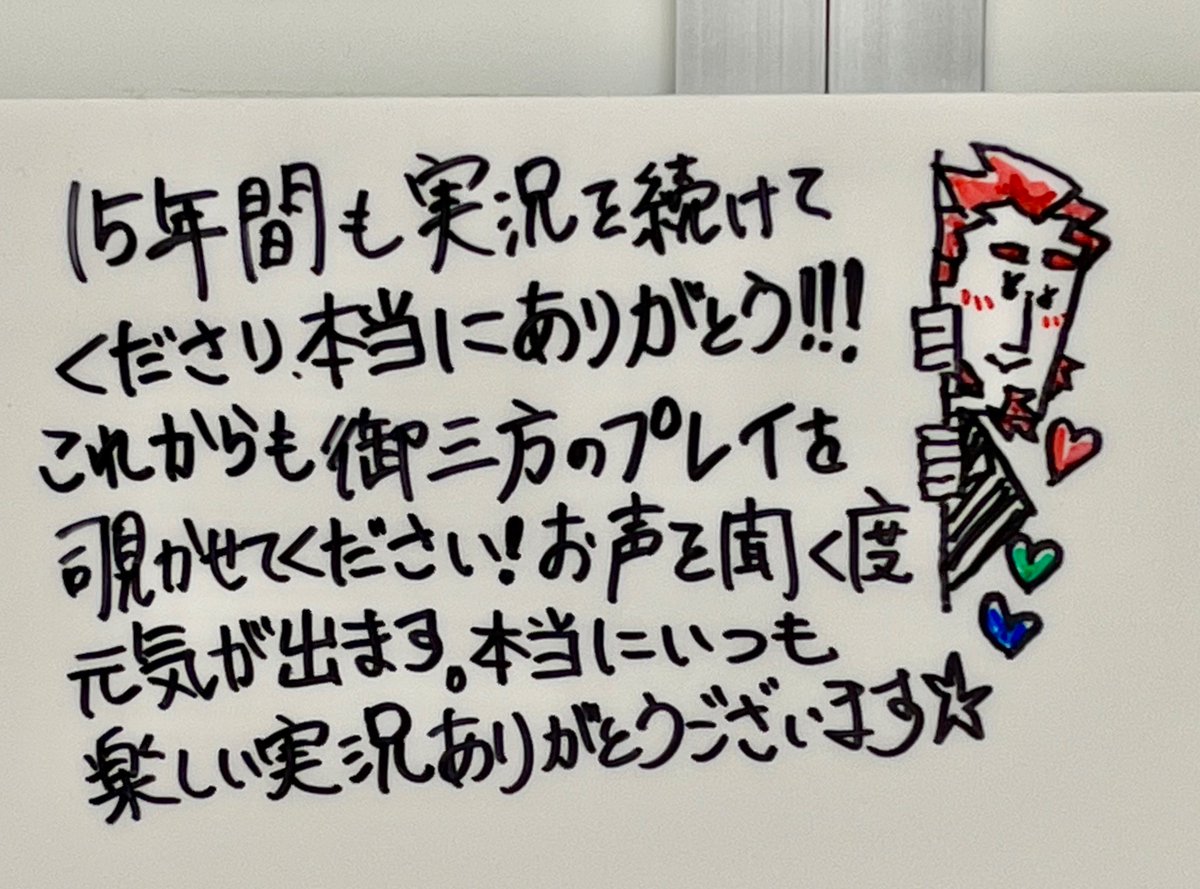 15年間も実況を続けて
くださり、本当にありがとう!!!
これからも御三方のプレイを
覗かせてください!お声を聞く度
元気が出ます。本当にいつも
楽しい実況ありがとうございます☆